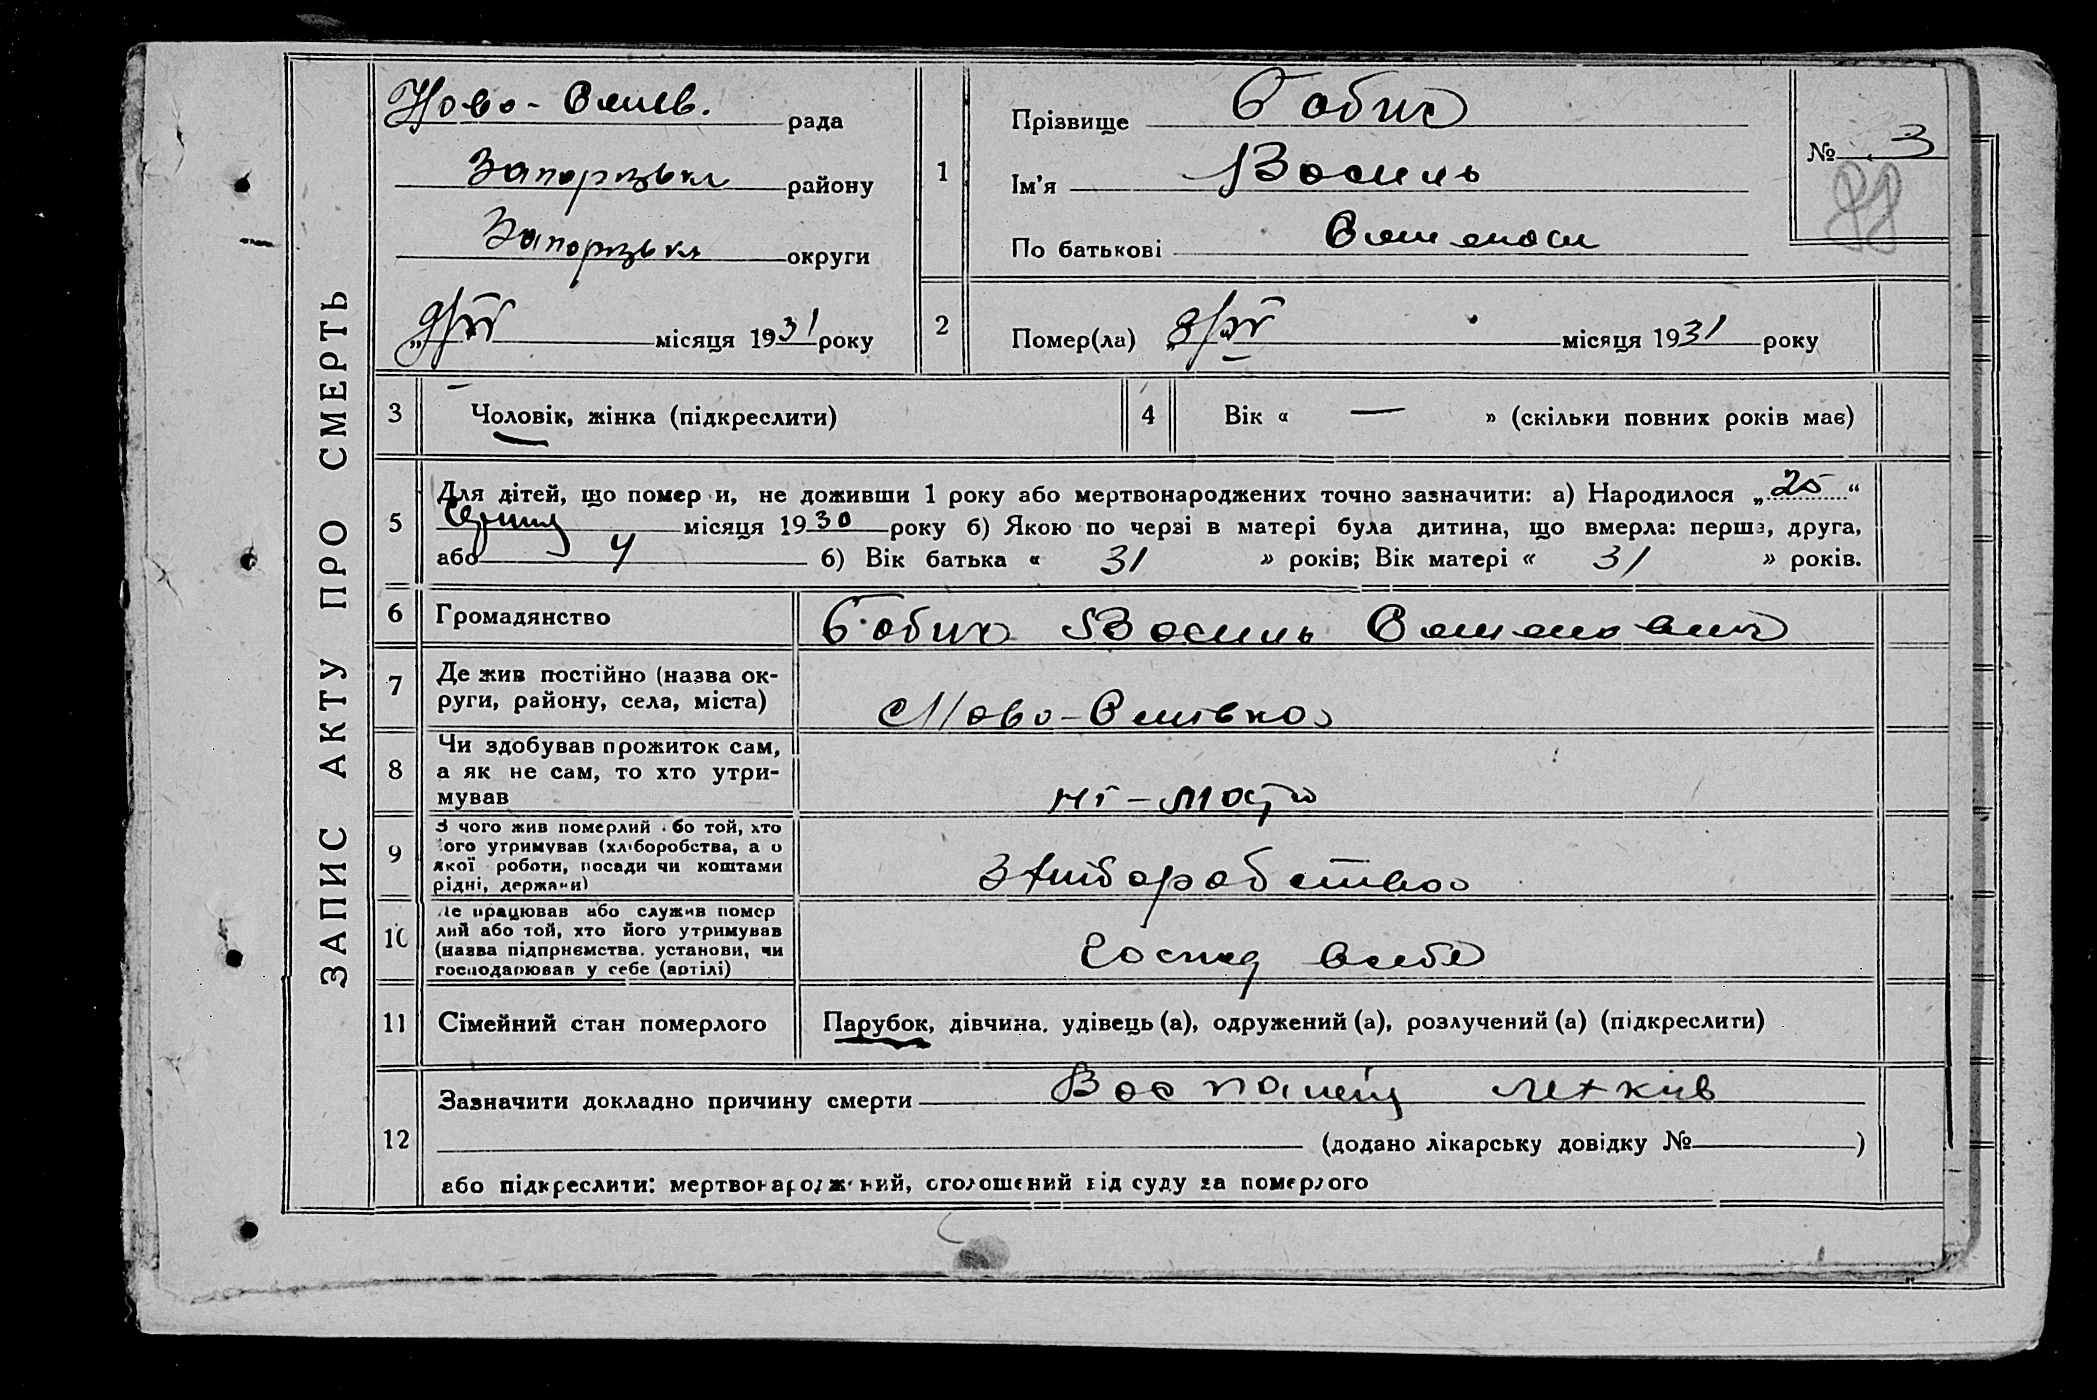 ЗАПИС АКТУ ПРО СМЕРТЬ
Ново- рада
Запорізька району
Запорізька округи
місяця 1931 року
1
Прізвище Бабич
Ім'я Василь
По батькові
№ 3
88
2
Помер(ла) місяця 1931 року
3
Чоловік, жінка (підкреслити)
4
Вік « — » (скільки повних років має)
5
Для дітей, що померли, не доживши 1 року або мертвонароджених точно зазначити: а) Народилося „25“
місяця 1930 року б) Якою по черзі в матері була дитина, що вмерла: перша, друга,
або 4 б) Вік батька « 31 » років; Вік матері « 31 » років.
6
Громадянство Бабич Василь
7
Де жив постійно (назва ок-
руги, району, села, міста)
8
Чи здобував прожиток сам,
а як не сам, то хто утри-
мував
ні -
9
З чого жив померлий або той, хто
його утримував (хліборобства, а о
якої роботи, посади чи коштами
рідні, держави)
З хліборобства
10
Де працював або служив помер
лий або той, хто його утримував
(назва підприємства, установи, чи
господарював у себе (артілі)
Господ в себе
11
Сімейний стан померлого Парубок, дівчина, удівець (а), одружений (а), розлучений (а) (підкреслити)
12
Зазначити докладно причину смерти легків
(додано лікарську довідку № )
або підкреслити: мертвонароджений, оголошений від суду за померлого